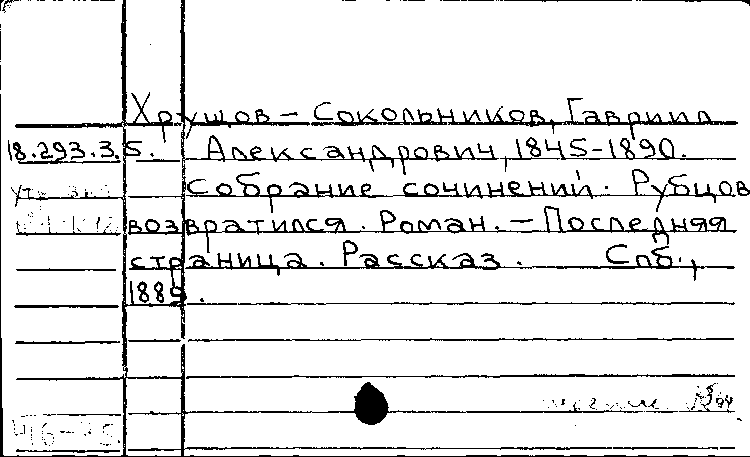 Хрущов – Сокольников, Гавриил
18.293.3.5. Александрович, 1845-1890.
Собрание сочинений. Рубцов
возвратился. Роман. – Последняя
страница. Рассказ. Спб.,
1889.